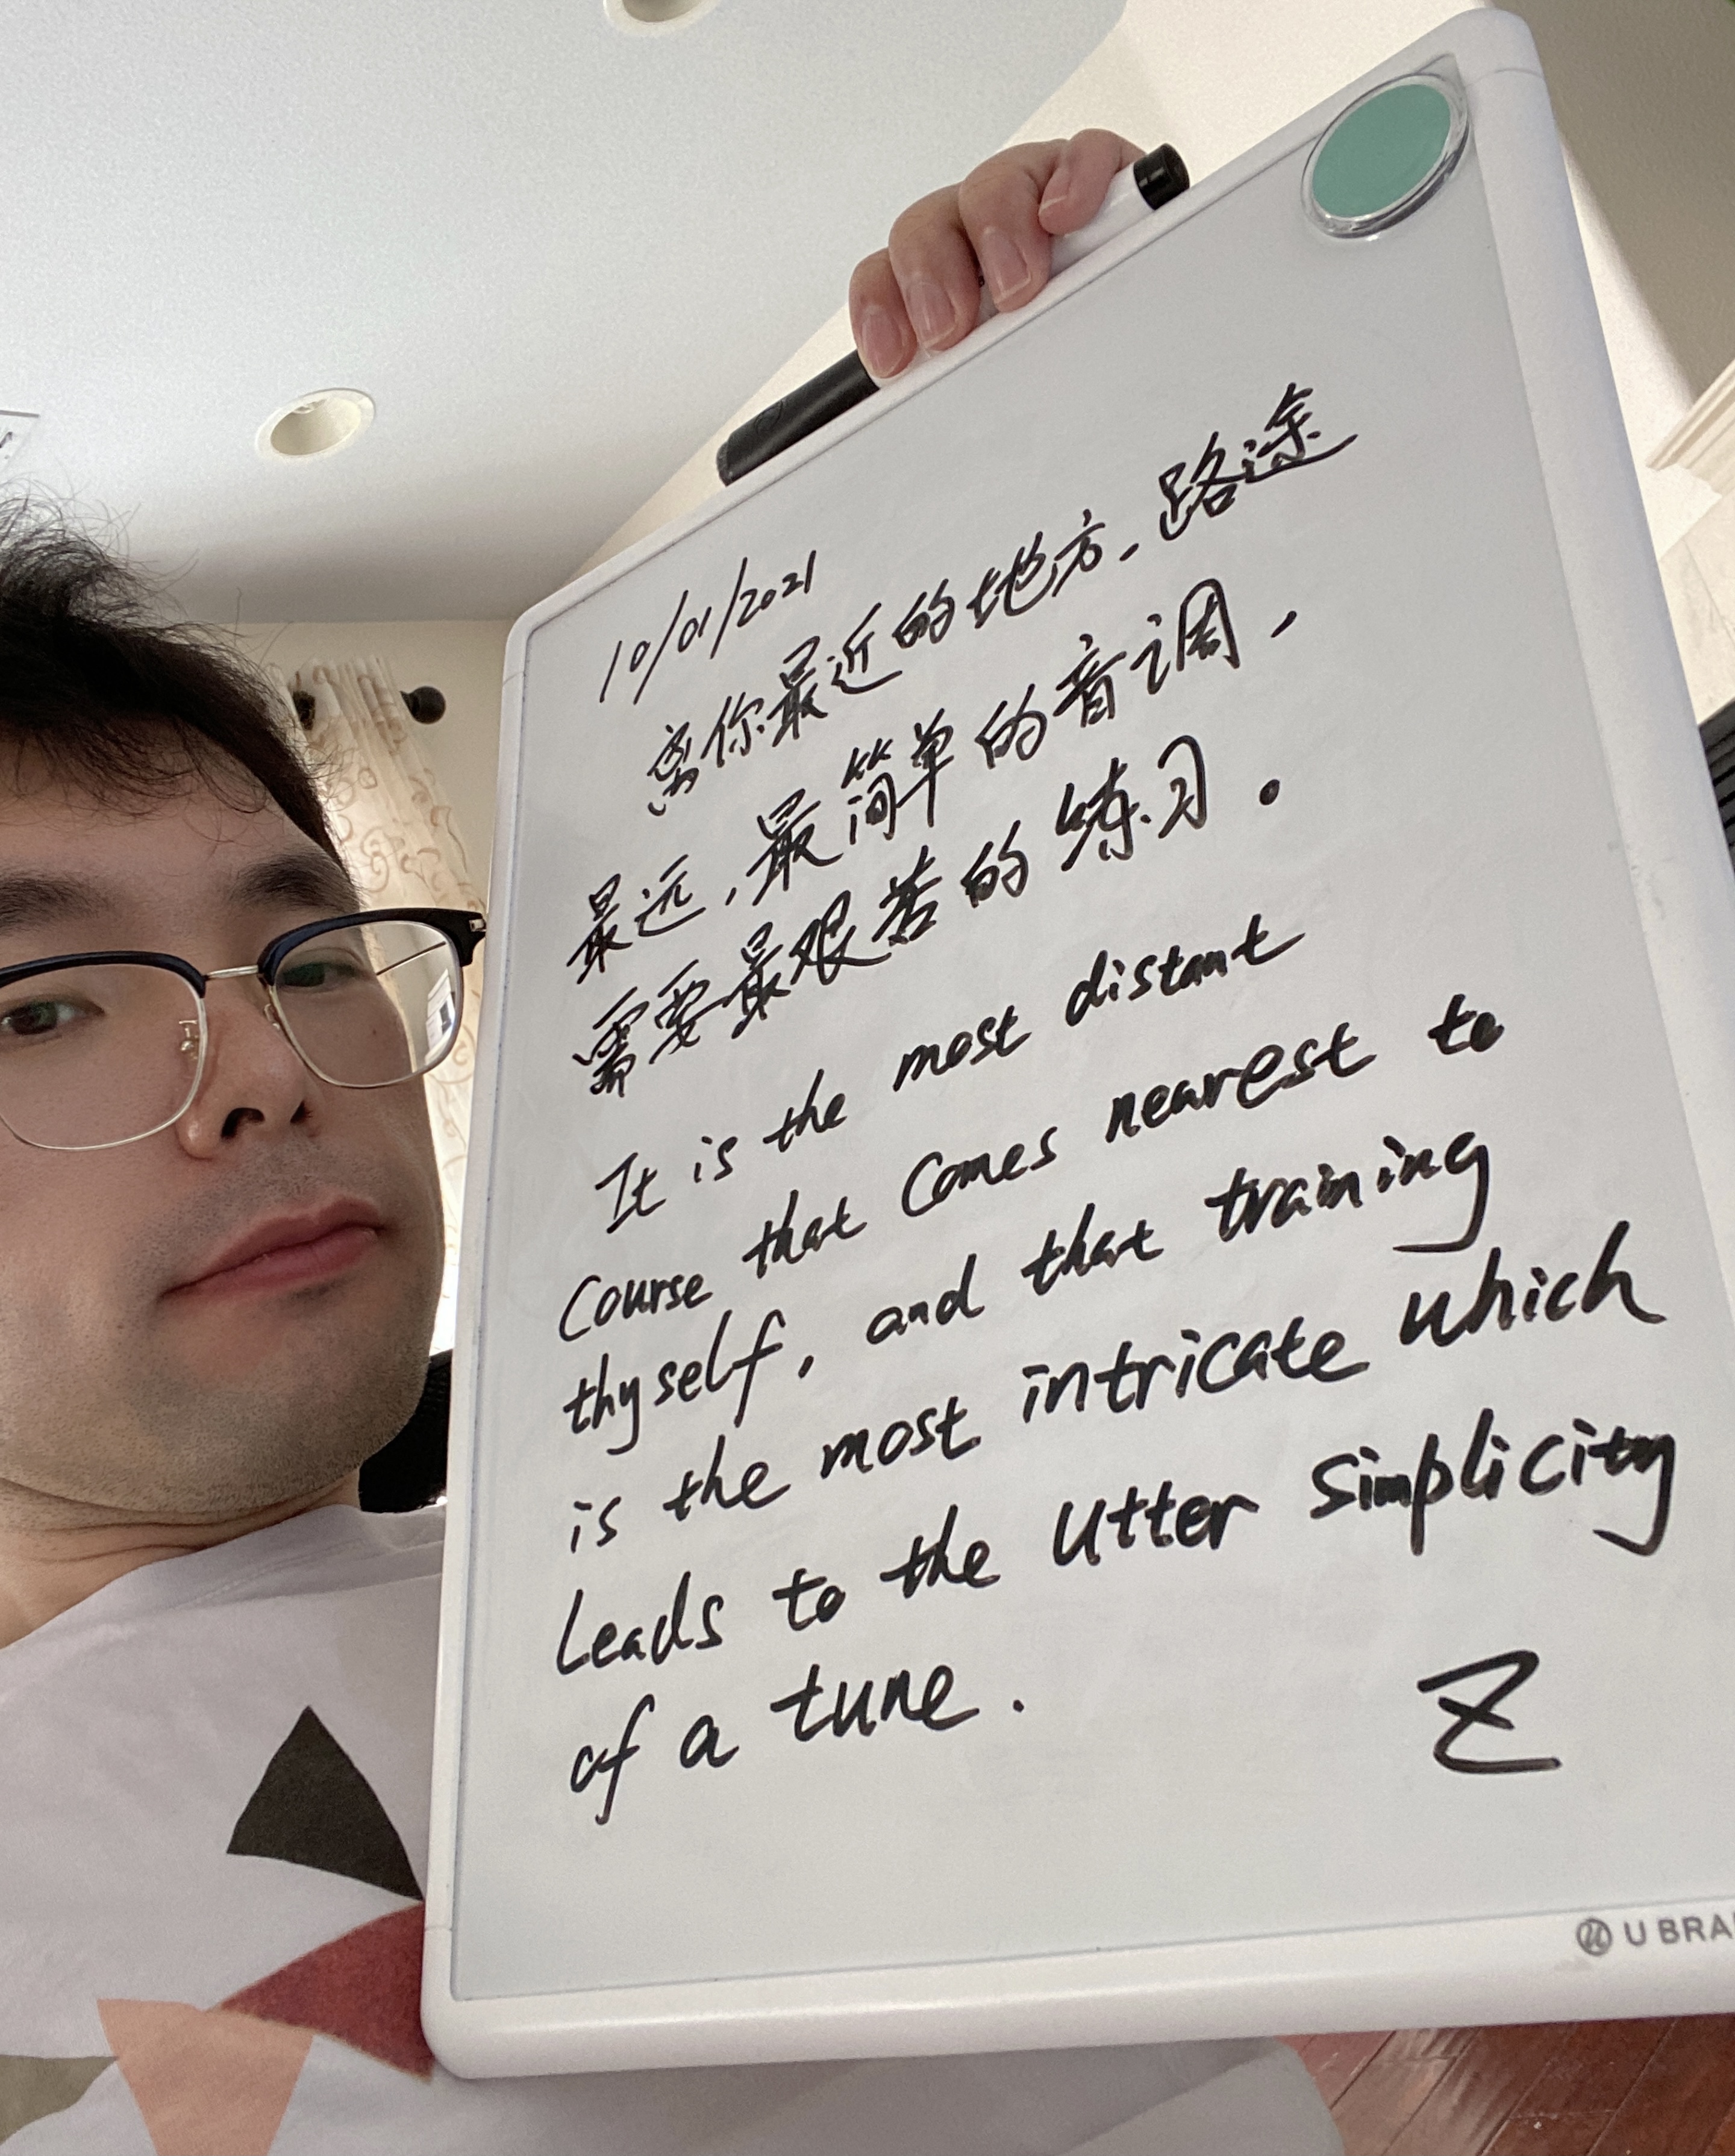 10/01/2021
离你最近的地方，路途
最远，最简单的音调，
需要最艰苦的练习。
It is the most distant
Course that Comes nearest to
thyself, and that training
is the most intricate which
Leads to the utter simplicity
of a tune.
Z
U BRA